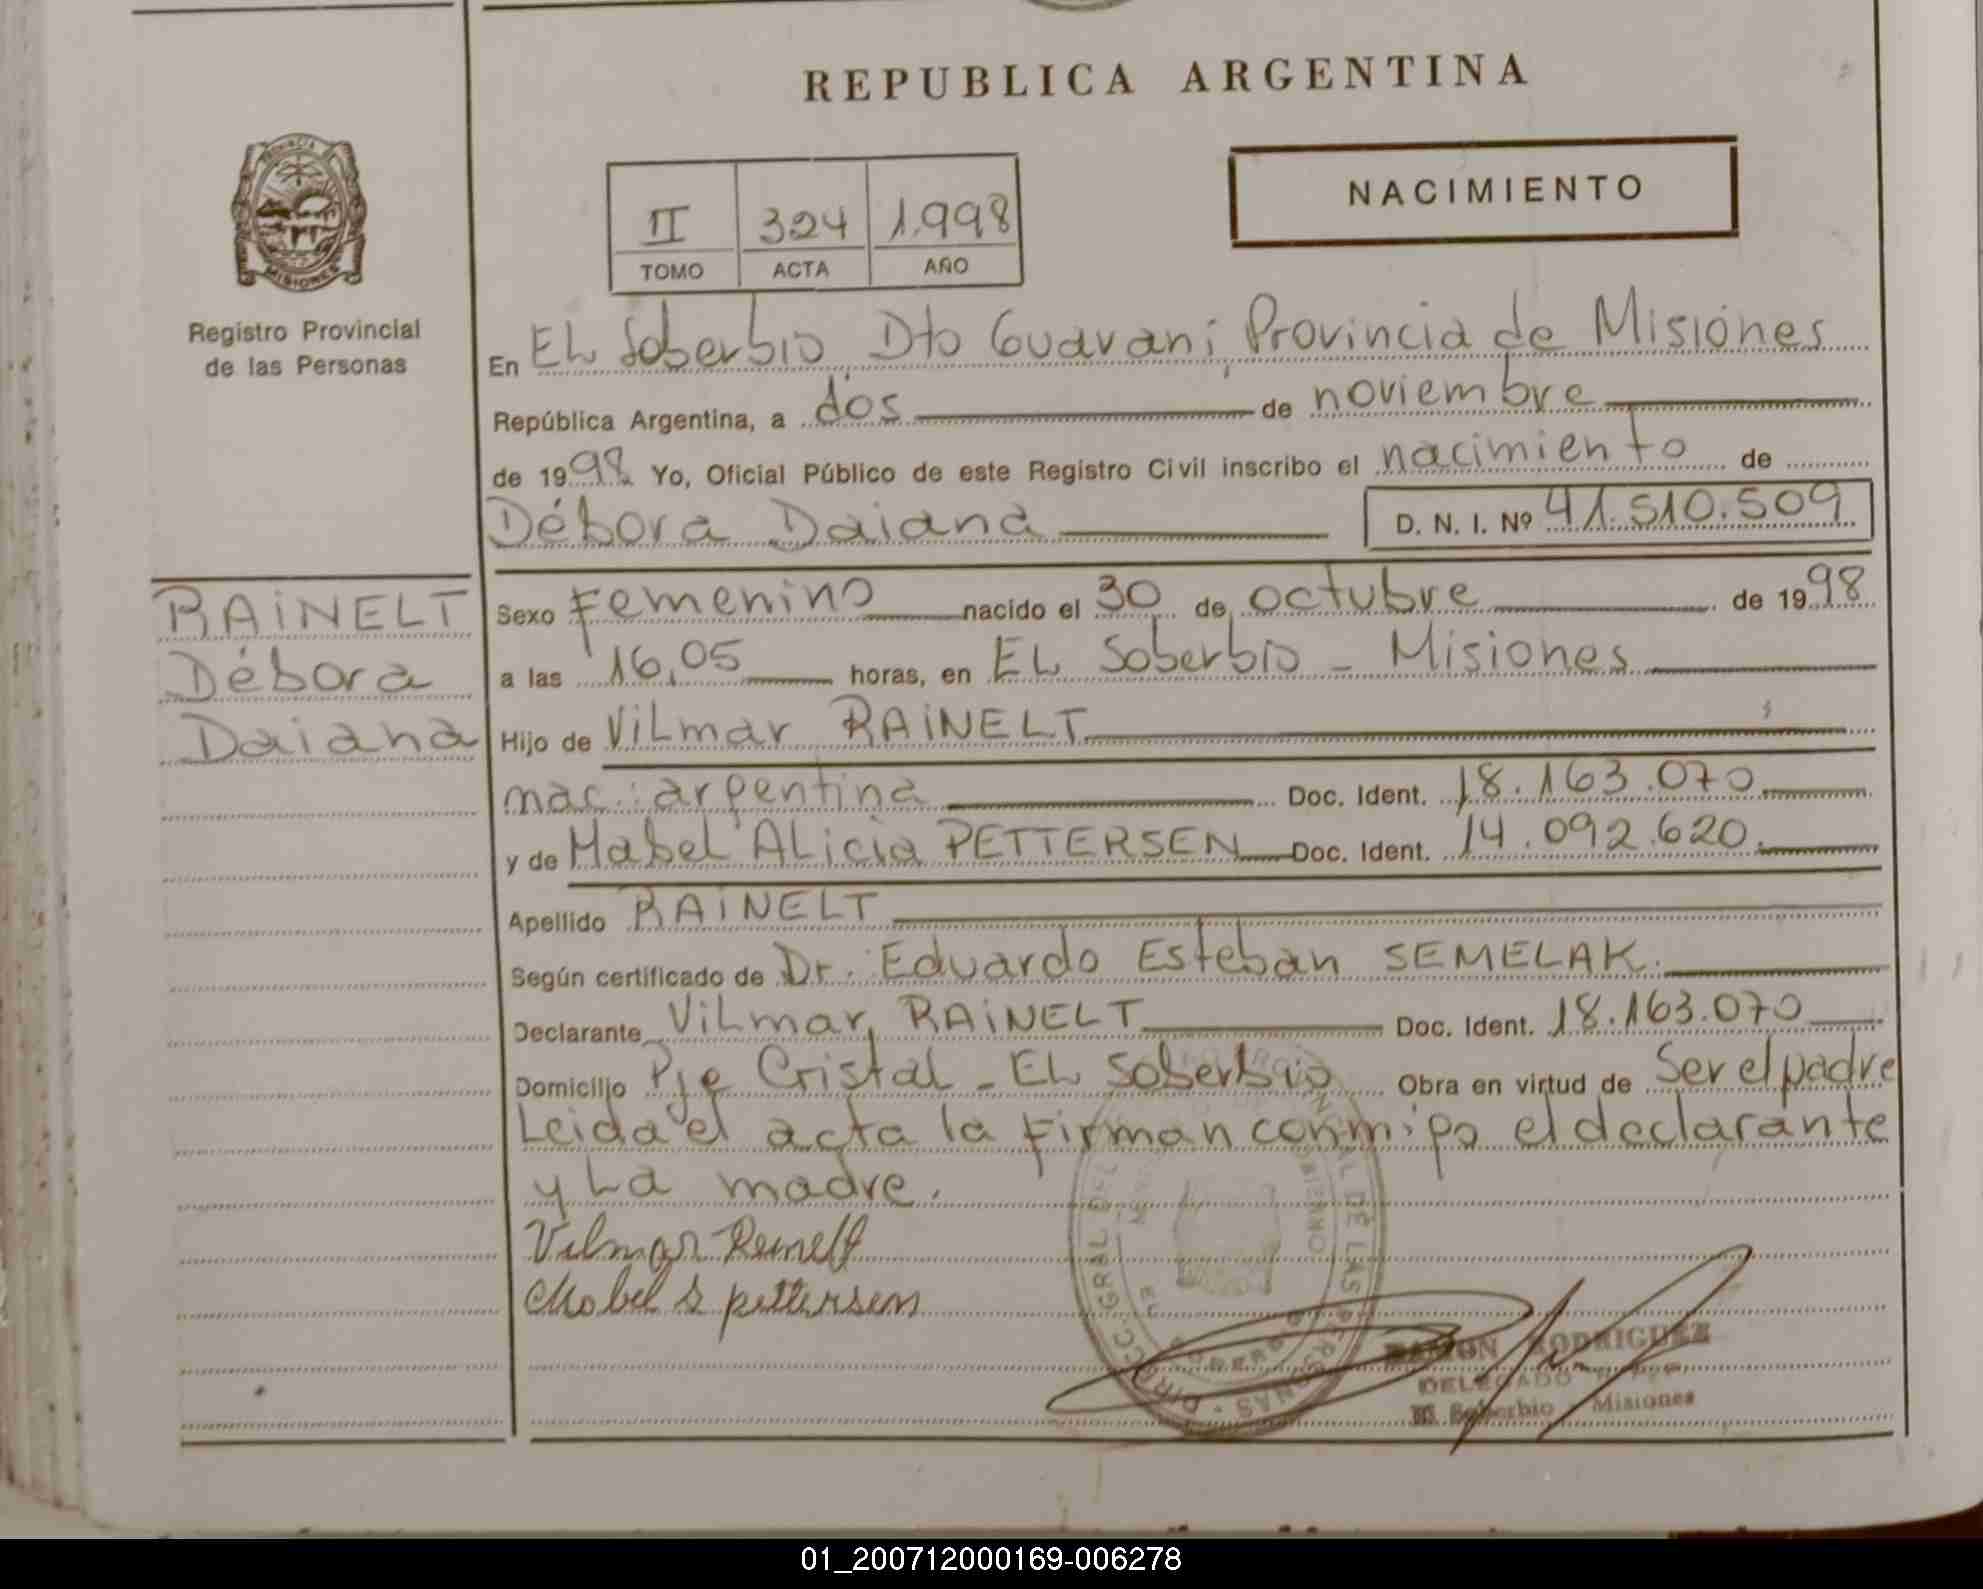 REPUBLICA ARGENTINA
NACIMIENTO
II 324 1.998
TOMO ACTA AÑO
PROVINCIA DE
MISIONES
Registro Provincial
de las Personas
En EL Soberbio Dto Guaraní; Provincia de Misiones
República Argentina, a dos de noviembre
de 1998 Yo, Oficial Público de este Registro Civil inscribo el nacimiento de
Débora Daiana D. N. I. Nº 41.510.509
RAINELT
Débora
Daiana
Sexo Femenino nacido el 30 de octubre de 1998
a las 16,05 horas, en EL Soberbio - Misiones
Hijo de Vilmar RAINELT
nac: argentina Doc. Ident. 18.163.070
y de Mabel Alicia PETTERSEN Doc. Ident. 14.092.620
Apellido RAINELT
Según certificado de Dr. Eduardo Esteban SEMELAK.
Declarante Vilmar RAINELT Doc. Ident. 18.163.070
Domicilio Pje Cristal - EL Soberbio Obra en virtud de Ser el padre
Leida el acta la firman conmigo el declarante
y La madre.
Vilmar Reinelt
Mabel A pettersen
RAMON RODRIGUEZ
DELEGADO
El Soberbio Misiones
01_200712000169-006278